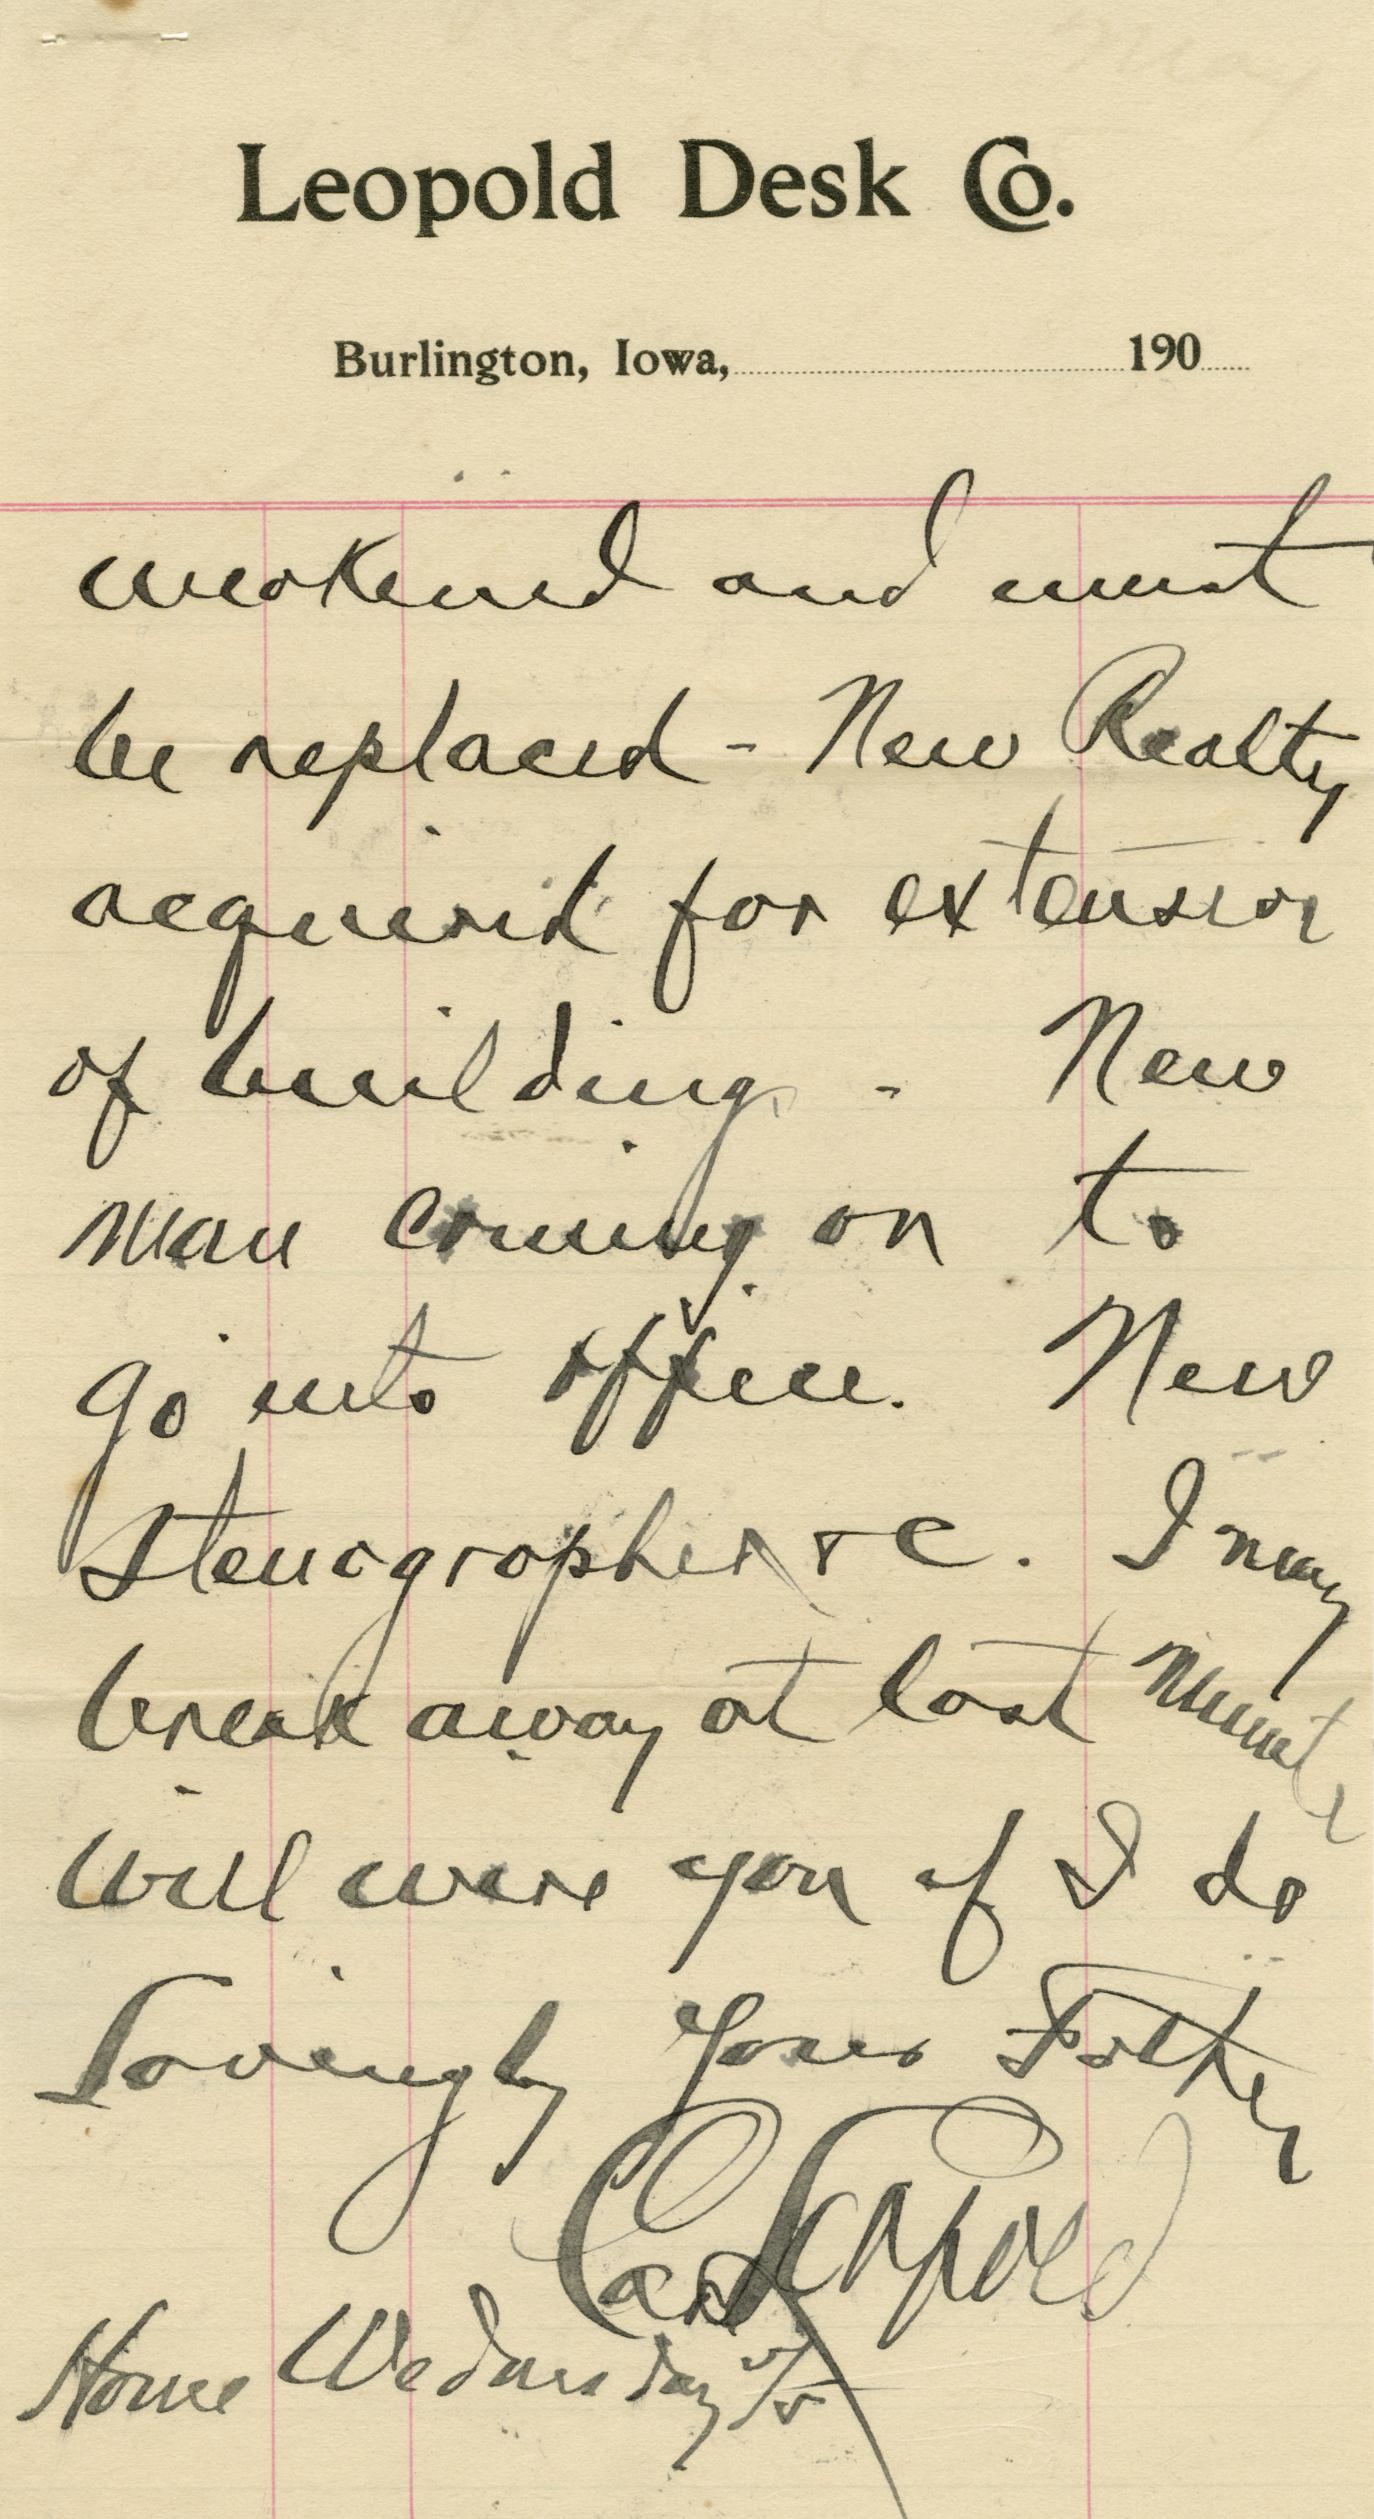 Leopold Desk Co.
Burlington, Iowa, 190
weakened and must
be replaced - New Realty
acquired for extension
of building - New
man coming on to
go into office. New
Stenographer &c. I may
break away at last minute
will wire you if I do
Lovingly Your Father
Carl Leopold
Home Wednesday